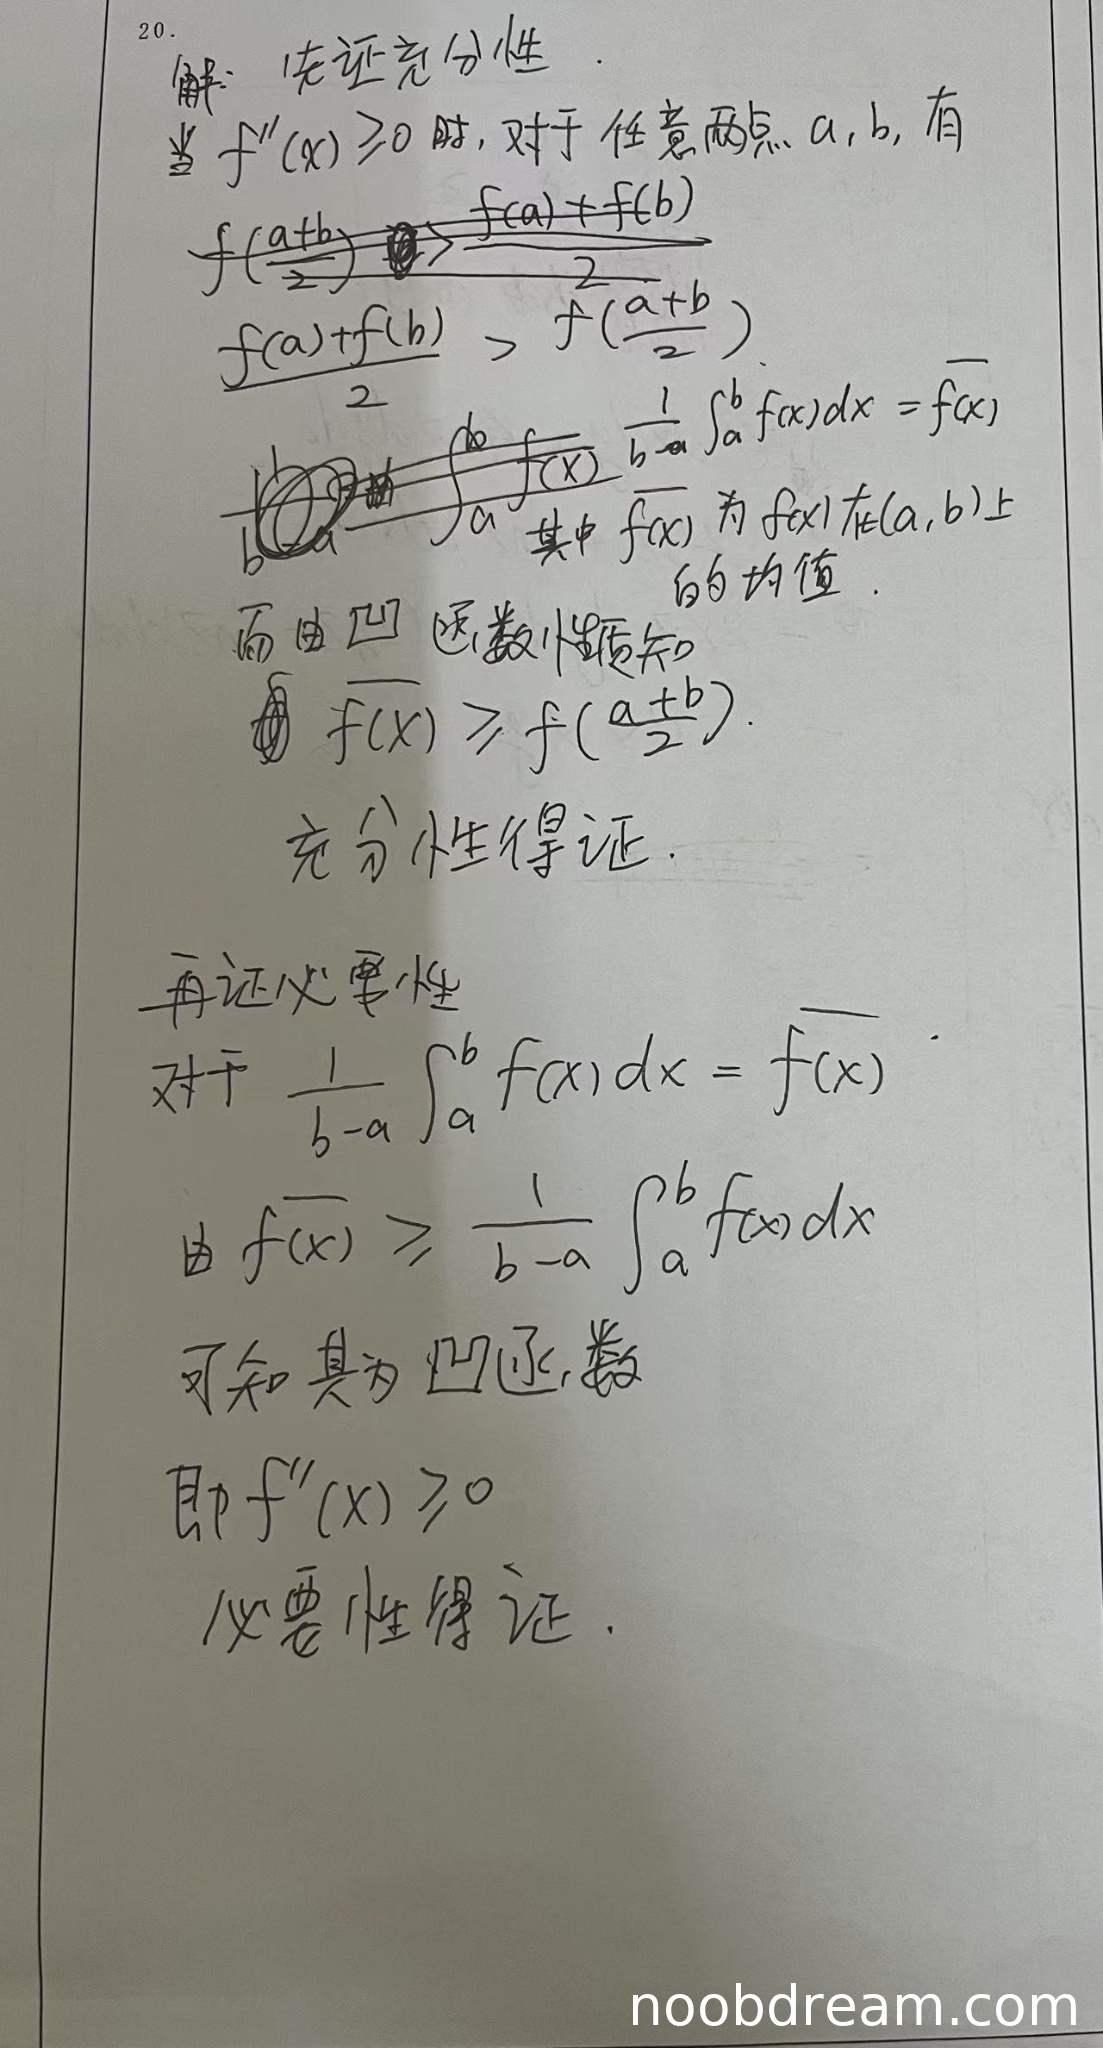 20.
解: 先证充分性.
当 f''(x) ≥0 时, 对于 任意两点 a, b, 有
f(\frac{a+b}{2}) > \frac{f(a)+f(b)}{2}
\frac{f(a)+f(b)}{2} > f(\frac{a+b}{2}).
\frac{1}{b-a} \int_a^b f(x)dx = \overline{f(x)}
\int_a^b f(x)
其中 \overline{f(x)} 为 f(x)在(a,b)上
的均值.
而由凹函数性质知
\overline{f(x)} ≥ f(\frac{a+b}{2}).
充分性得证.
再证必要性
对于 \frac{1}{b-a} \int_a^b f(x)dx = \overline{f(x)}
由 \overline{f(x)} ≥ \frac{1}{b-a} \int_a^b f(x)dx
可知其为凹函数
即 f''(x) ≥0
必要性得证.
noobdream.com